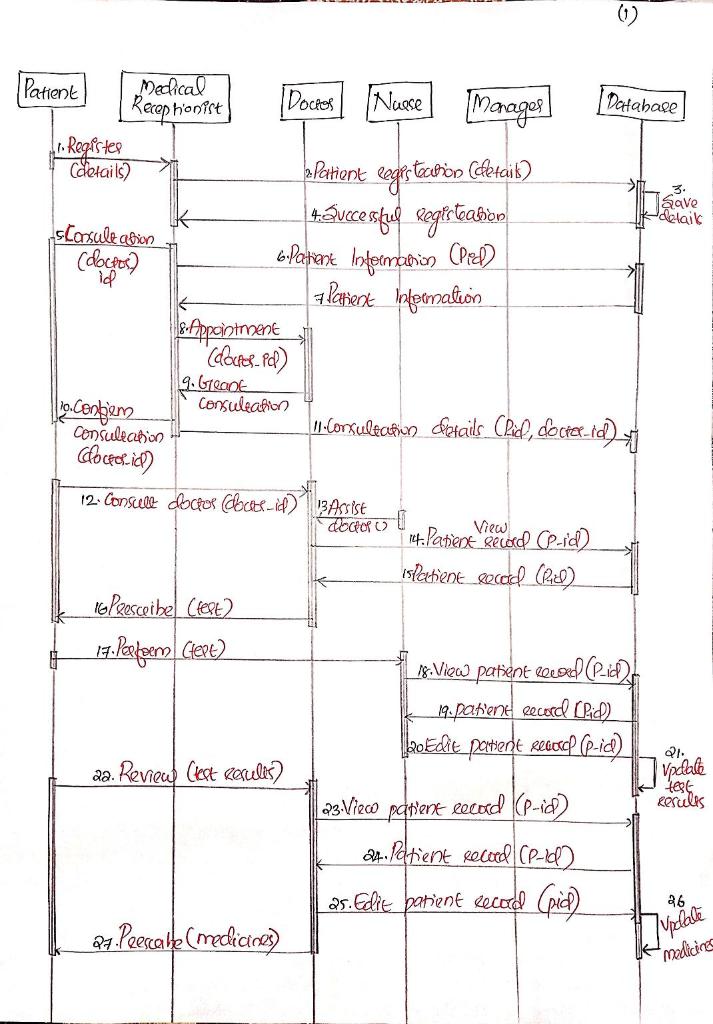 (1)
Patient
Medical
Receptionist
Doctor
Nurse
Manager
Database
1.Register
(details)
2.Patient registration (details)
3.
Save
details
4.Successful registration
5.Consultation
(doctor)
id
6.Patient Information (Pid)
7.Patient Information
8.Appointment
(doctor_id)
9.Grant
consultation
10.Confirm
consultation
(doctor_id)
11.Consultation details (Pid, doctor_id)
12.Consult doctor (doctor_id)
13 Assist
doctor()
View
14.Patient record (P_id)
15 Patient record (Pid)
16 Prescribe (test)
17.Perform (test)
18.View patient record (P_id)
19.patient record (Pid)
20 Edit patient record (P_id)
21.
Update
test
results
22. Review (test results)
23.View patient record (P_id)
24.Patient record (P_id)
25.Edit patient record (pid)
26
Update
medicines
27.Prescribe (medicines)